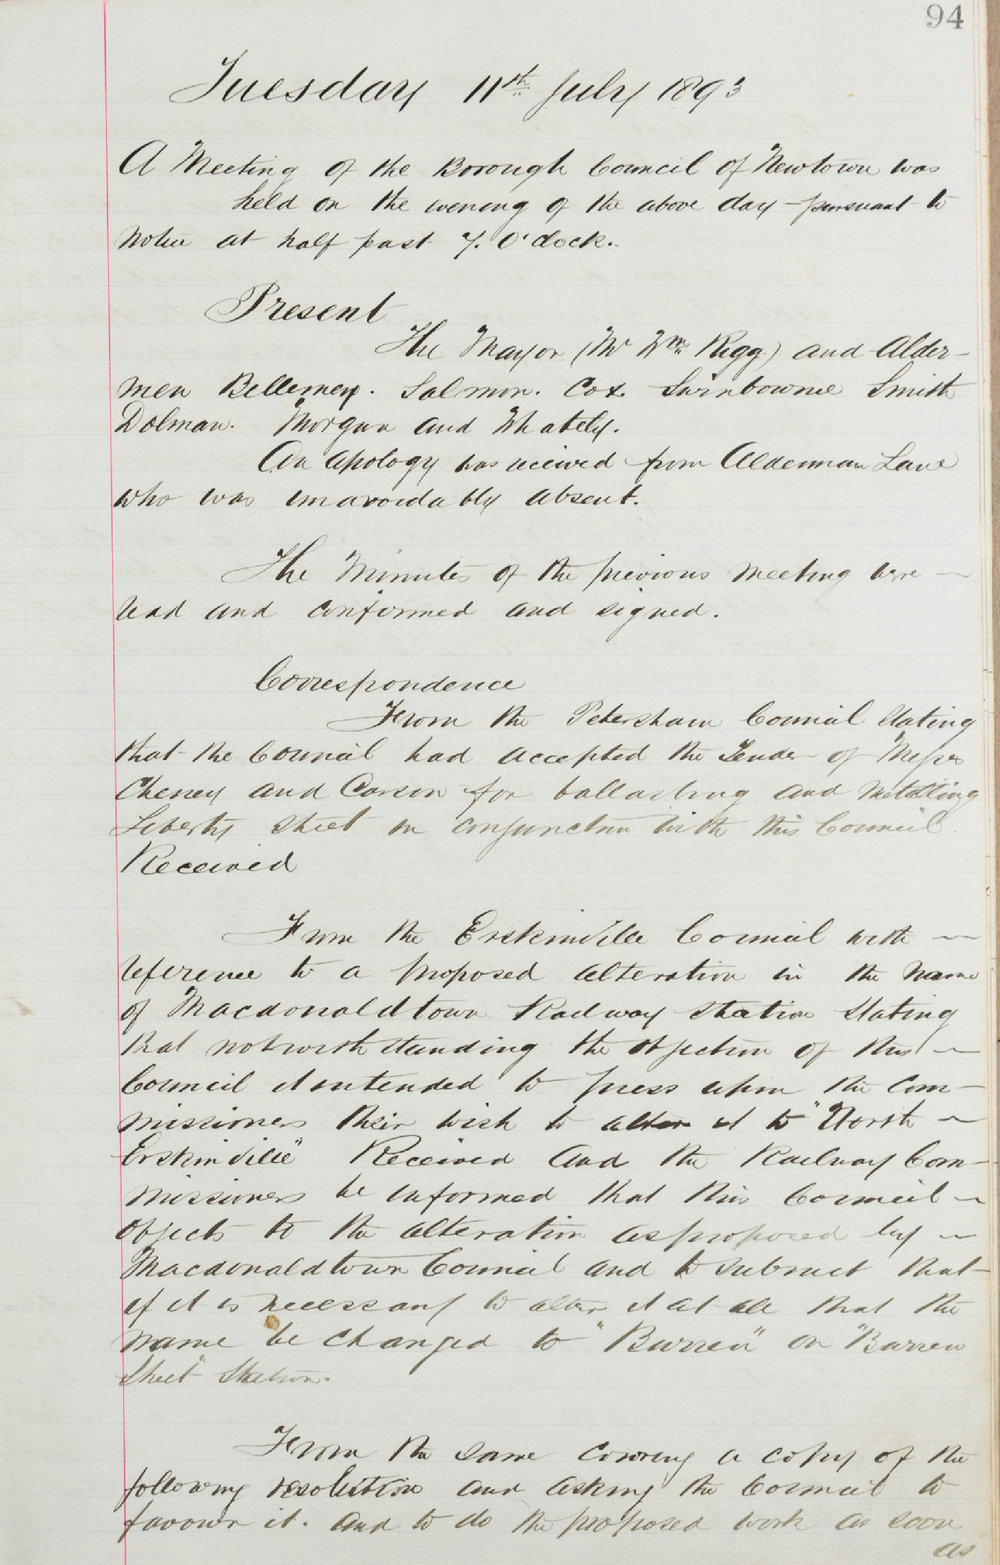 94
Tuesday 11th July 1893
A Meeting of the Borough Council of Newtown was
held on the evening of the above day pursuant to
notice at half past 7. O'clock.
Present
The Mayor (Mr Wm Rigg) and Alder-
men Bellemey. Salmon. Cox Swinbourne Smith
Dolman. Morgan and Whately.
An apology was received from Alderman Lane
who was unavoidably absent.
The Minutes of the previous meeting were
read and confirmed and signed.
Correspondence
From the Petersham Council stating
that the Council had accepted the Tender of Messrs
Cheney and Carson for ballasting and metalling
Liberty Street in conjunction with this Council.
Received
From the Erskinville Council with
reference to a proposed alteration in the name
of Macdonaldtown Railway Station stating
that notwithstanding the objection of this
Council it intended to press upon the Com-
missioners their wish to alter it to "North
Erskinville" Received and the Railway Com-
missioners be informed that this Council
objects to the alteration as proposed by
Macdonaldtown Council and to submit that
if it is necessary to alter it at all that the
name be changed to "Burren" or "Burren
Street" Station.
From the same covering a copy of the
following resolution and asking the Council to
favour it. and to do the proposed work as soon
as